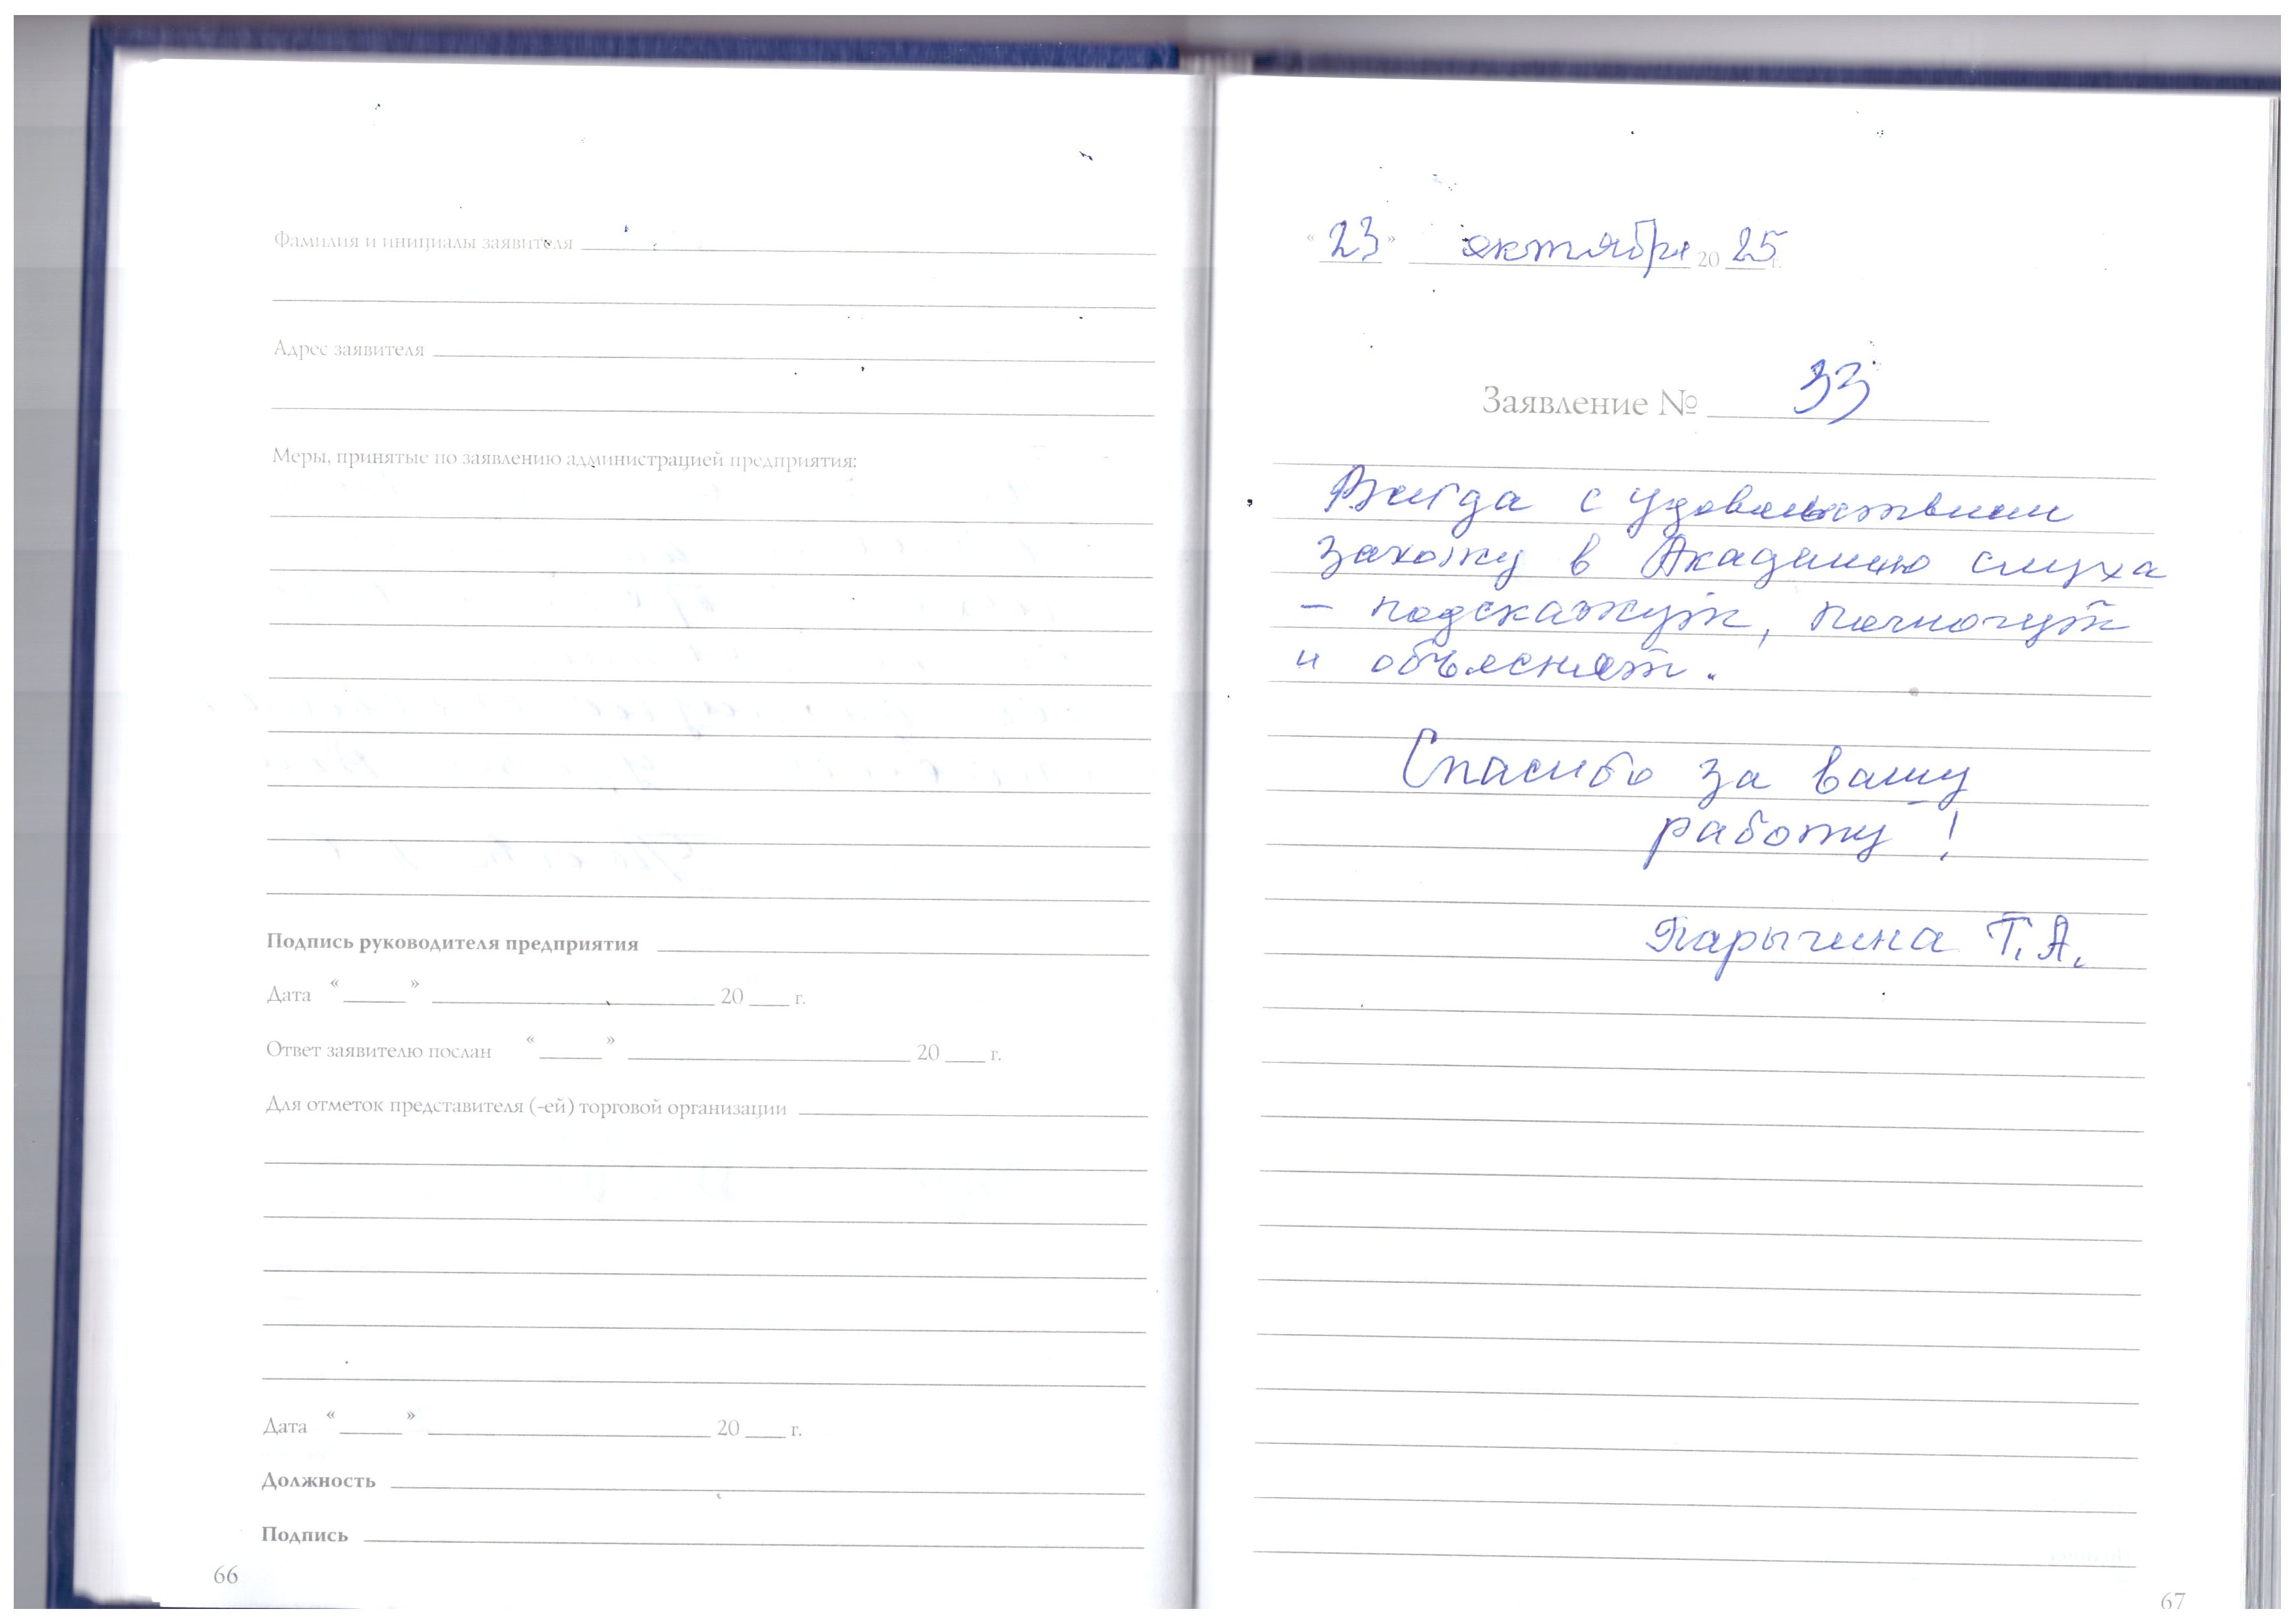 Фамилия и инициалы заявителя
Адрес заявителя
Меры, принятые по заявлению администрацией предприятия:
Подпись руководителя предприятия
Дата « » 20 г.
Ответ заявителю послан « » 20 г.
Для отметок представителя (-ей) торговой организации
Дата « » 20 г.
Должность
Подпись
66
« 23 » октября 20 25 г.
Заявление № 33
Всегда с удовольствием
захожу в Академию слуха
– подскажут, помогут
и объяснят.
Спасибо за вашу
работу!
Т. А.
67